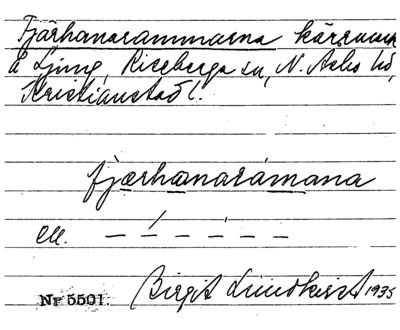 Fjärhanarammarna kärrmark
å Ljung, Riseberga sn, N. Åsbo hd,
Kristianstads l.
fjærhanarámana
ell. – – – – –
Nr 5501.
Birgit Lindkvist 1935